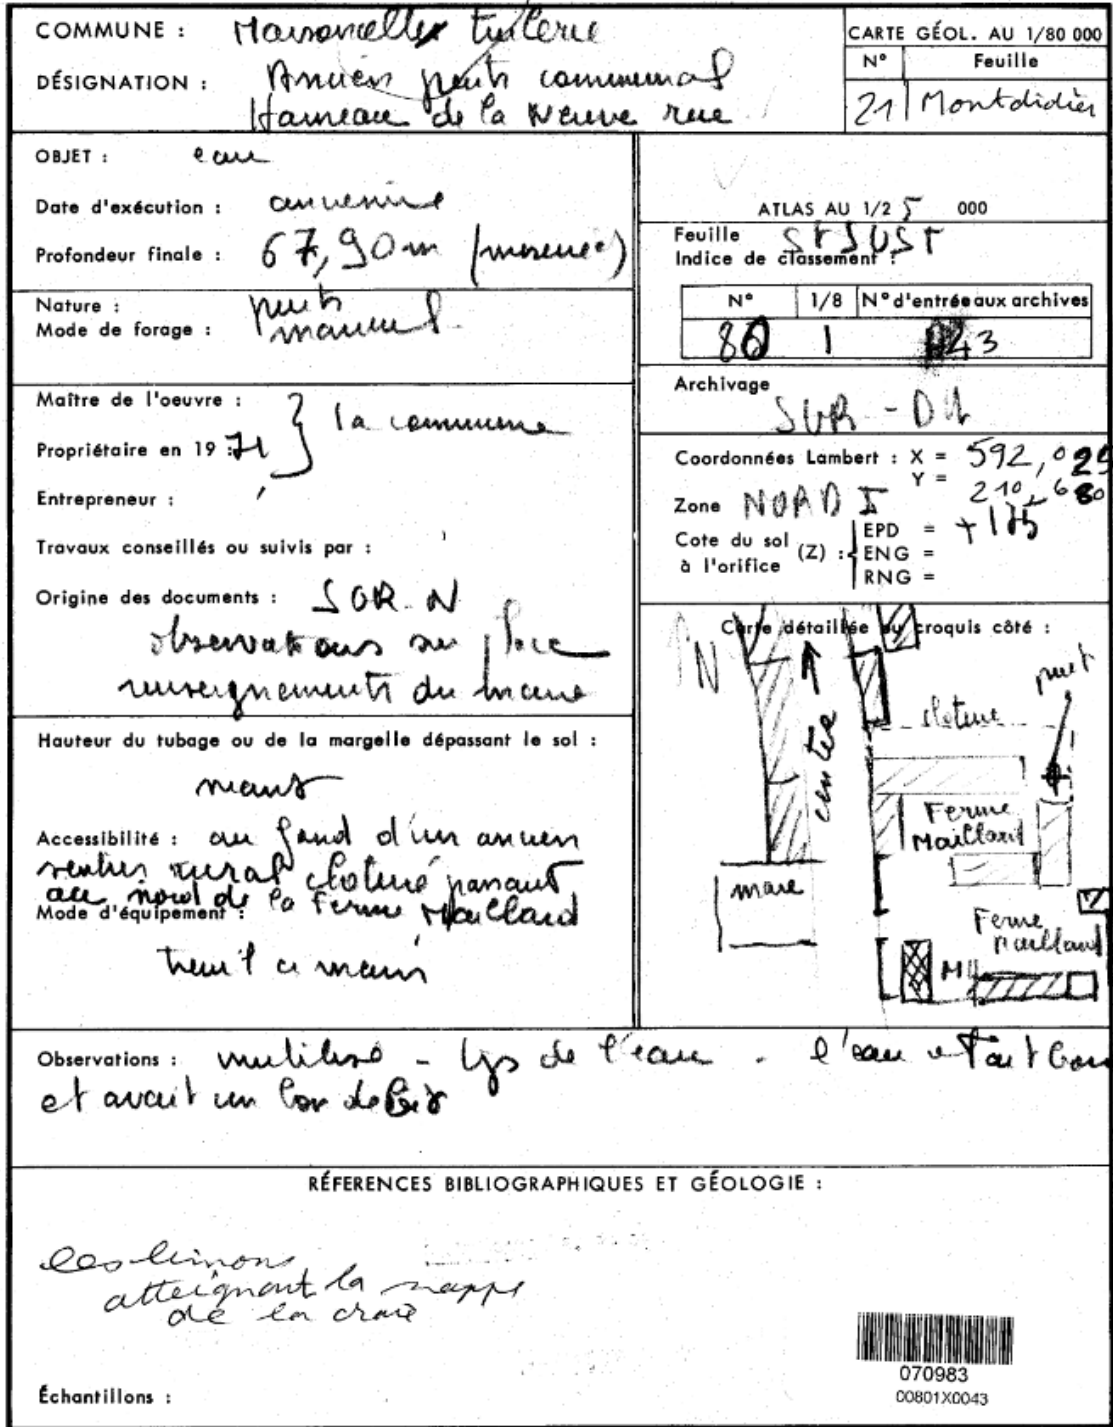 COMMUNE : Maisoncelles tuilerie
DÉSIGNATION : Ancien puits communal
Hameau de la Neuve rue
CARTE GÉOL. AU 1/80 000
N° Feuille
21 Montdidier
OBJET : eau
Date d'exécution : ancienne
Profondeur finale : 67,90m (mesurée)
Nature : puits
Mode de forage : manuel
Maître de l'oeuvre :
Propriétaire en 19 : 71 } la commune
Entrepreneur :
Travaux conseillés ou suivis par :
Origine des documents : SGR.N
observations sur place
renseignements du maire
Hauteur du tubage ou de la margelle dépassant le sol :
néant
Accessibilité : au fond d'un ancien
sentier rural cloturé passant
au nord de la Ferme Maillard
Mode d'équipement :
treuil a main
ATLAS AU 1/2 5 000
Feuille St JUST
Indice de classement :
N° 1/8 N° d'entrée aux archives
80 1 43
Archivage
SGR -
Coordonnées Lambert : X = 592,025
Y = 210,680
Zone NORD I
Cote du sol à l'orifice (Z) :
EPD = +175
ENG =
RNG =
Carte détaillée ou croquis côté :
N
centre
cloture
puit
Ferme
Maillard
mare
Ferme
Maillard
MH
Observations : inutilisé - de l'eau - l'eau etait bonne
et avait un bon debit
RÉFERENCES BIBLIOGRAPHIQUES ET GÉOLOGIE :
les limons
atteignant la nappe
de la craie
Échantillons :
070983
00801X0043